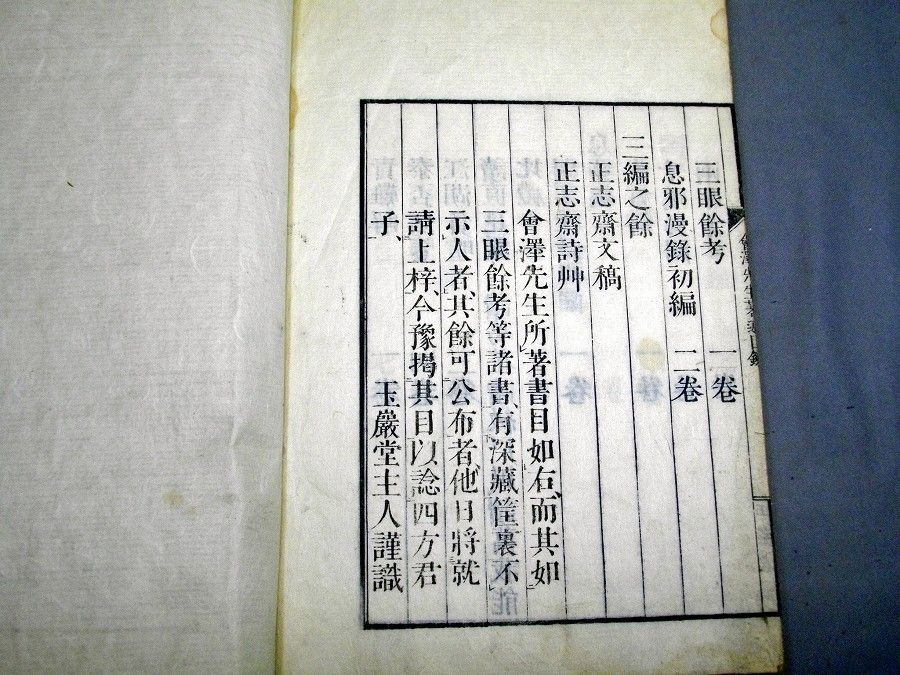 三眼餘考 一卷
息邪漫錄初編 二卷
三編之餘
正志齋文稿
正志齋詩艸
會澤先生所著書目如右、而其如
三眼餘考等諸書、有深藏筐裏不能
示人者、其餘可公布者、他日將就
請上梓、今豫揭其目以諗四方君
子、 玉巖堂主人謹識
會澤先生著述目錄